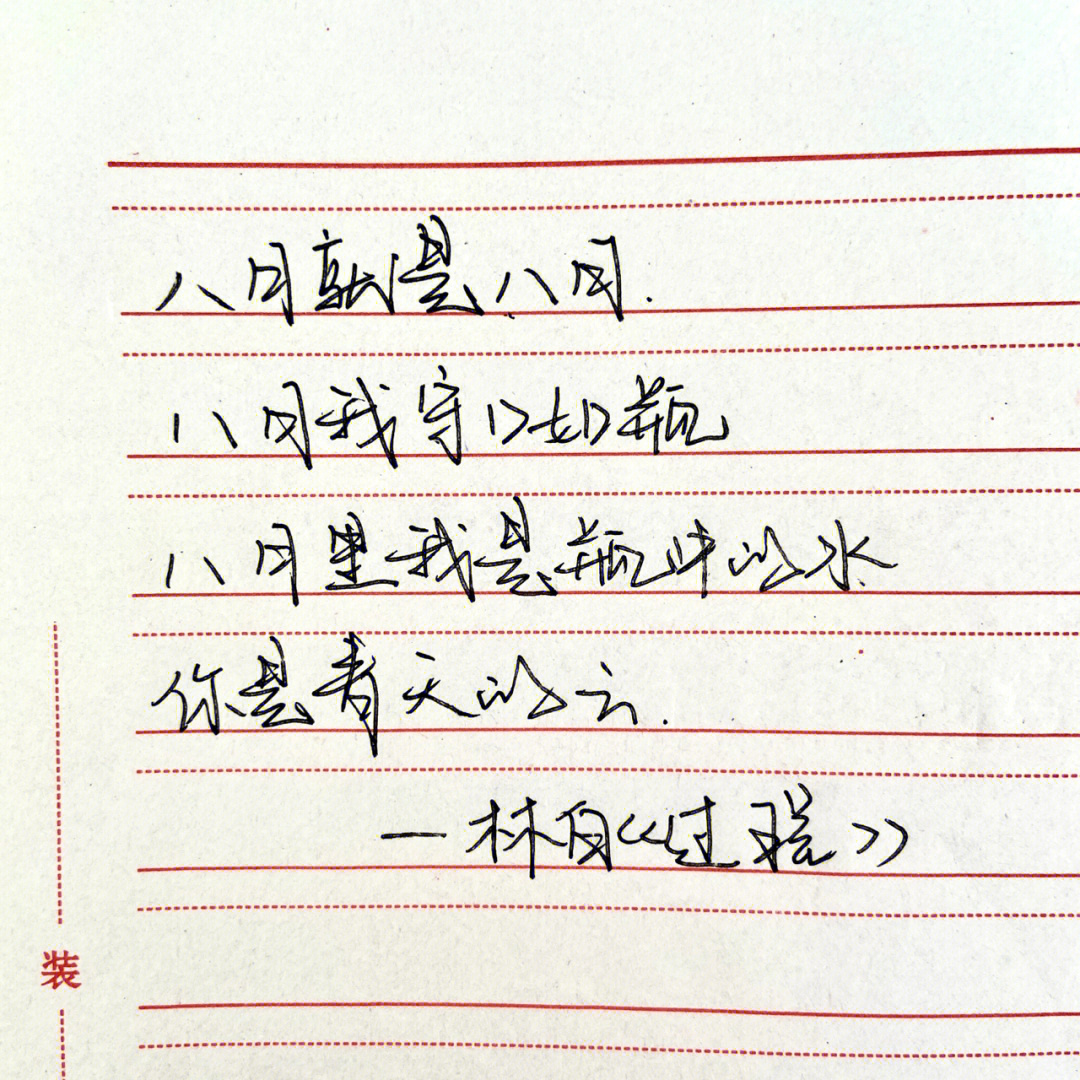 八月就是八月.
八月我守口如瓶
八月里我是瓶中的水
你是青天的云.
—林白《过程》
装